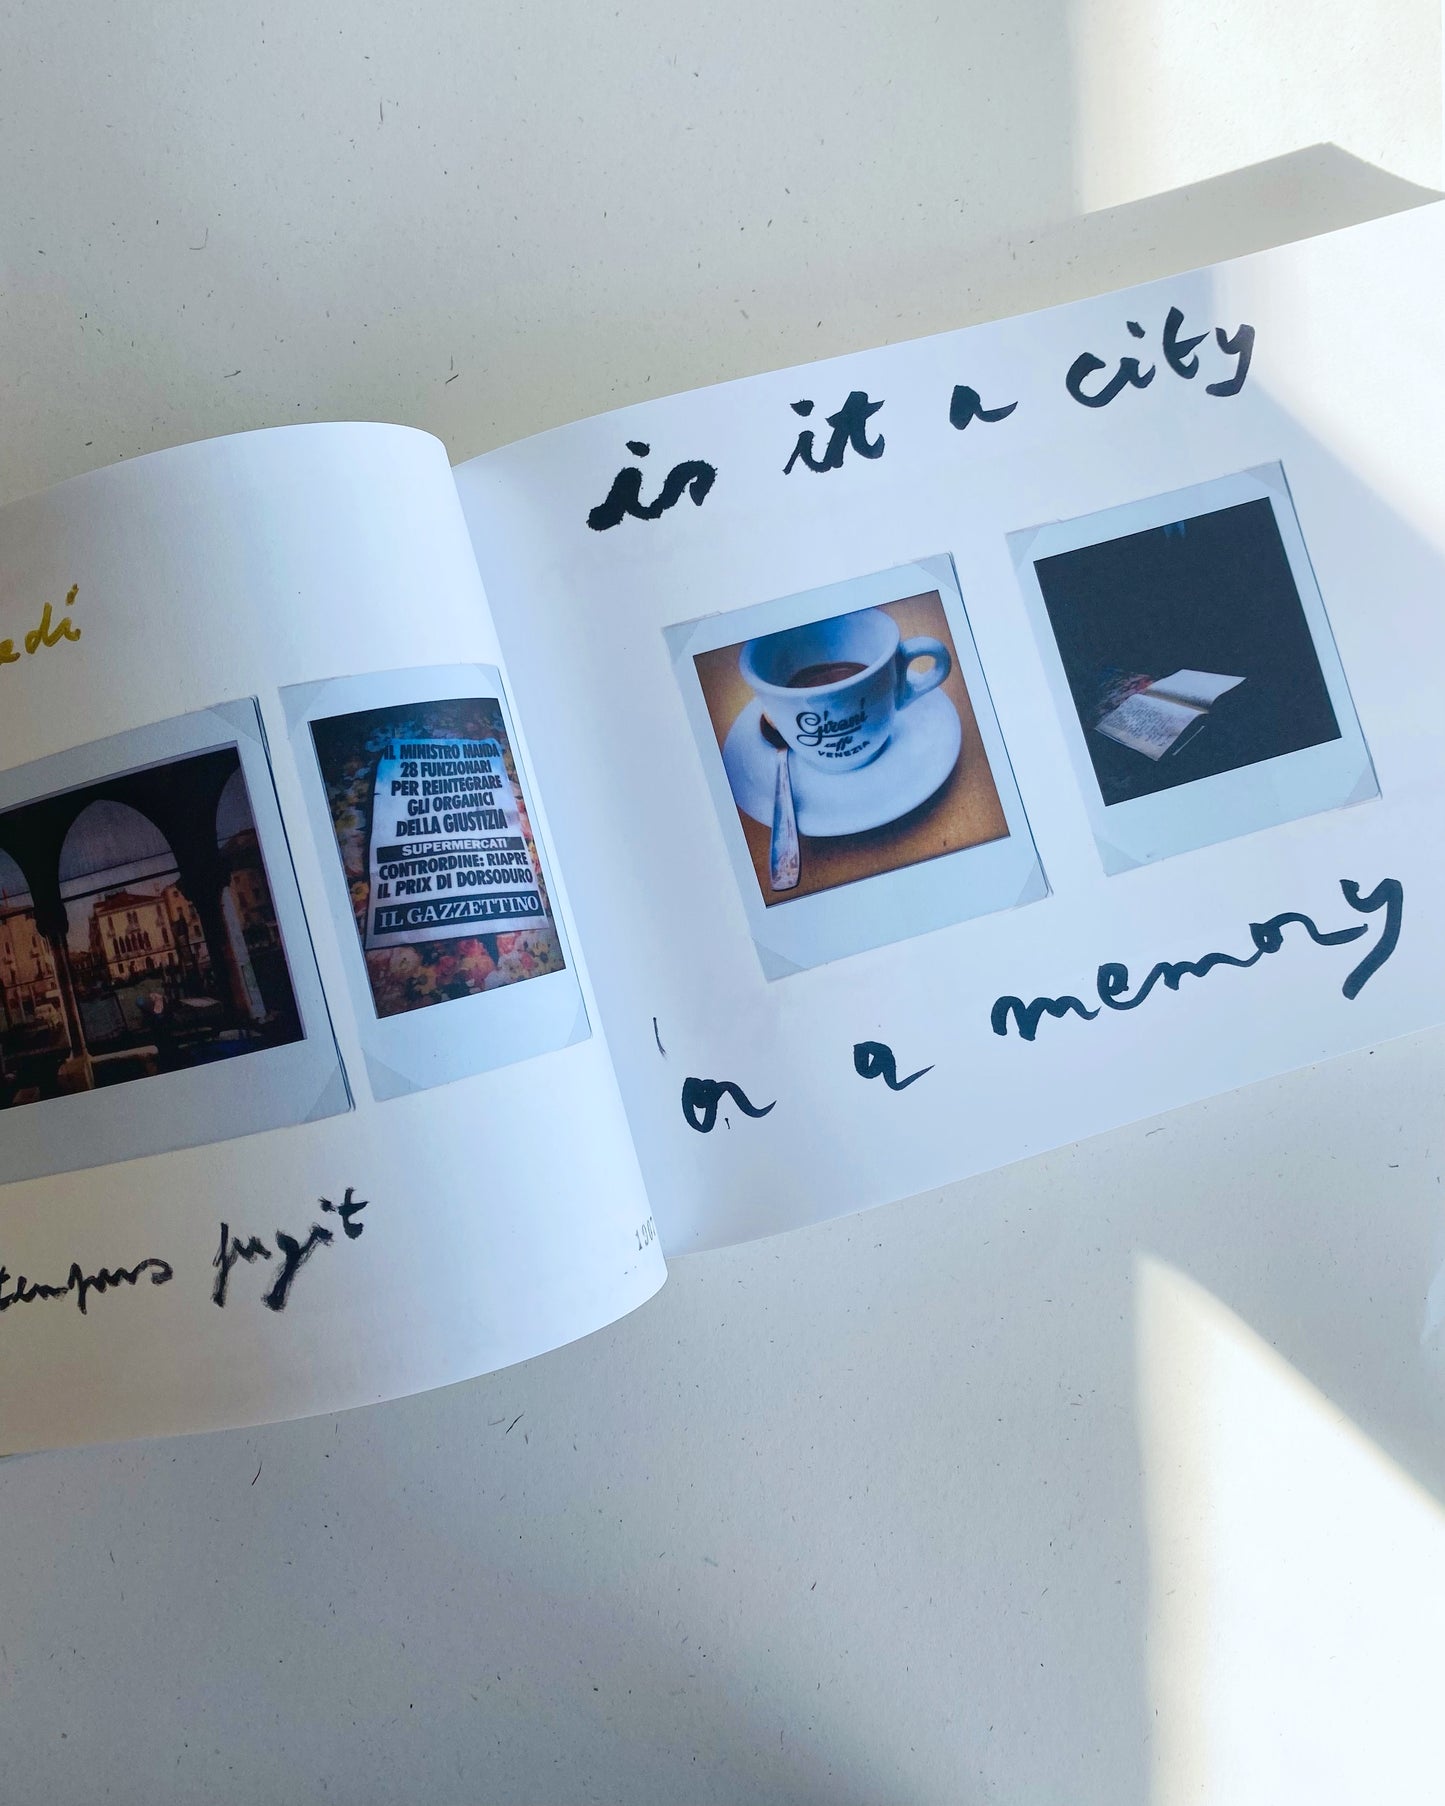 tempus fugit
IL MINISTRO MANDA
28 FUNZIONARI
PER REINTEGRARE
GLI ORGANICI
DELLA GIUSTIZIA
SUPERMERCATI
CONTRORDINE: RIAPRE
IL PRIX DI DORSODURO
IL GAZZETTINO
is it a city
Girani
caffè
VENEZIA
or a memory